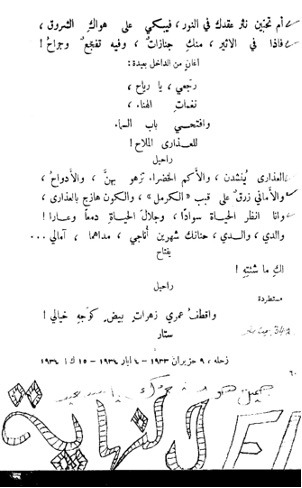 أم تحبّين نثرَ عقدك في النور، فيبكي على هواكِ الشروق،
فاذا في الاثير، منكِ جنازاتٌ، وفيه تفجّعٌ وجراحُ !
اغانٍ من الداخل بعيدة:
رجّعي، يا رياح،
نغماتِ الهناء،
وافتحي باب السماء
للعذارى الملاح !
راحيل
العذارى يُنشدن، والأكم الخضراء تزهو بهنَّ، والأدواحُ،
والأماني زرقٌ على قبب «الكرمل»، والكون هازج بالعذارى،
وانا انظر الحياة سواداً، وجلالَ الحياة دمعاً وعارا !
والدي، والدي، حنانك شهرين أُناجي، مداهما، آمالي ...
يفتاح
لكِ ما شئتِهِ !
راحيل
مستطردة
واقطفُ عمري زهراتٍ بيضٍ كوَجهِ خيالي !
ستار
زحله، ٩ حزيران ١٩٣٣ - ٤ ايار ١٩٣٤ - ١٥ ك١ ١٩٣٤
٦٠
النهاية